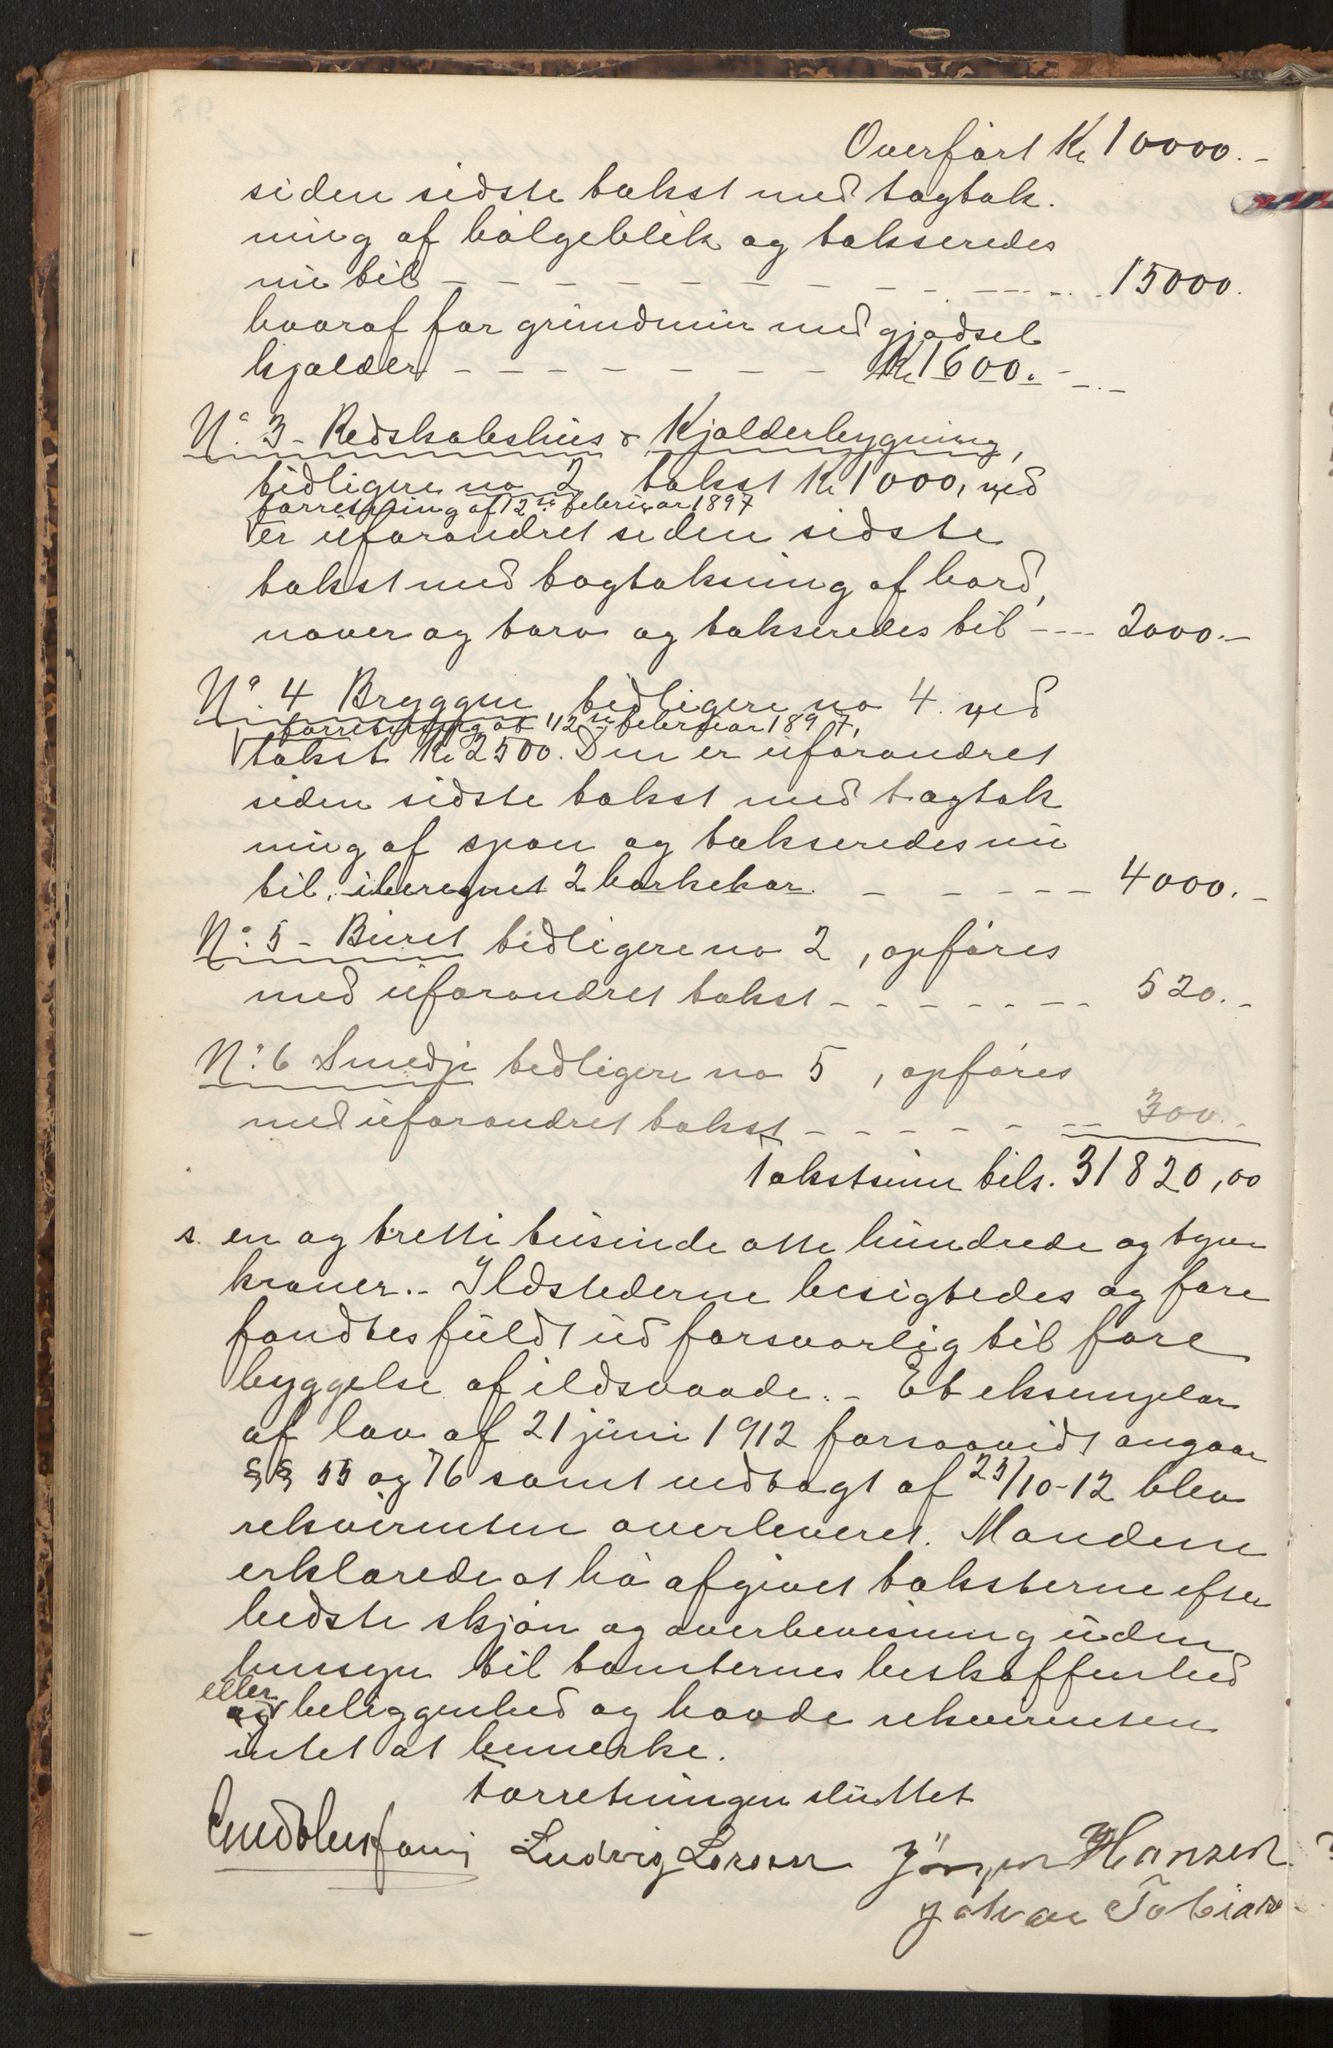 Overført Kr 10000.-
siden sidste takst med tagtæk-
ning af bølgeblik og takseredes
nu til - - - - - - - - - - - - 15000.
hvoraf for grundmur med gjødsel
kjælder - - - - - - - Kr 1600.-
No. 3 - Redskabshus & Kjælderbygning,
tidligere no 2 takst Kr 1000, ved
forretning af 12te februar 1897
er uforandret siden sidste
takst med tagtækning af bord,
næver og torv og takseredes til - - - 2000.-
No. 4 Bryggen tidligere no 4. ved
forretning af 12te februar 1897,
takst Kr 2500. Den er uforandret
siden sidste takst med tagtæk
ning af spon og takseredes nu
til, iberegnet 2 barkekar. - - - - - 4000.-
No. 5 - Buret tidligere no 2, opføres
med uforandret takst - - - - - - - 520.-
No. 6 Smedje tidligere no 5, opføres
med uforandret takst - - - - - - 300.-
Takstsum tils. 31820,00
s. en og tretti tusinde otte hundrede og tyve
kroner.- Ildstederne besigtedes og fore
fandtes fuldt ud forsvarlig til fore
byggelse af ildsvaade. - Et eksemplar
af lov af 21 juni 1912 forsaavidt angaar
§§ 55 og 76 samt vedtægt af 25/10-12 blev
rekvirenten overleveret. Mændene
erklærede at ha afgivet taksterne efter
bedste skjøn og overbevisning uden
hensyn til tomternes beskaffenhed
eller
og beliggenhed og havde rekvirenten
intet at bemerke.
Forretningen sluttet
Ludvig Larsen Jörgen Hanzen
Johan Tobias